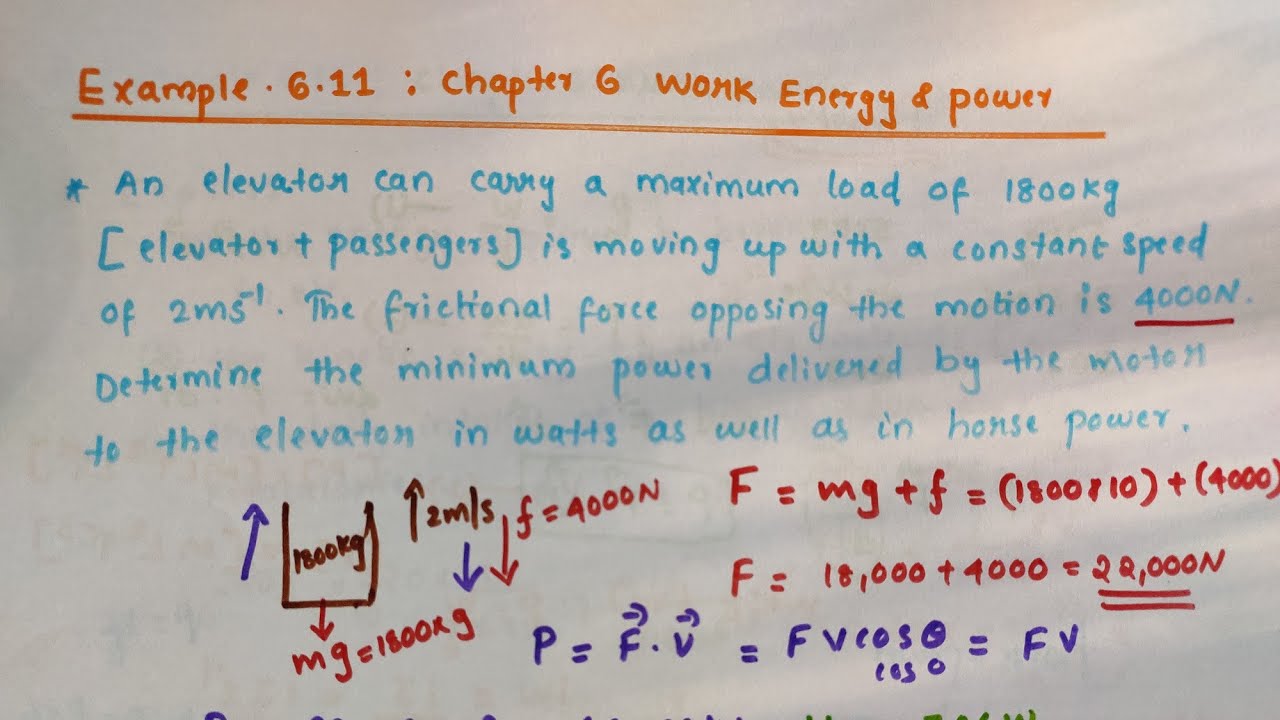 Example. 6.11 : Chapter 6 Work Energy & power
* An elevator can carry a maximum load of 1800kg
[elevator + passengers] is moving up with a constant speed
of 2ms⁻¹. The frictional force opposing the motion is 4000N.
Determine the minimum power delivered by the motor
to the elevator in watts as well as in horse power.
1800kg
2m/s
f = 4000N
mg = 1800xg
F = mg + f = (1800x10) + (4000)
F = 18,000 + 4000 = 22,000N
P = F⃗ . v⃗ = F V cosθ = F V
cos 0